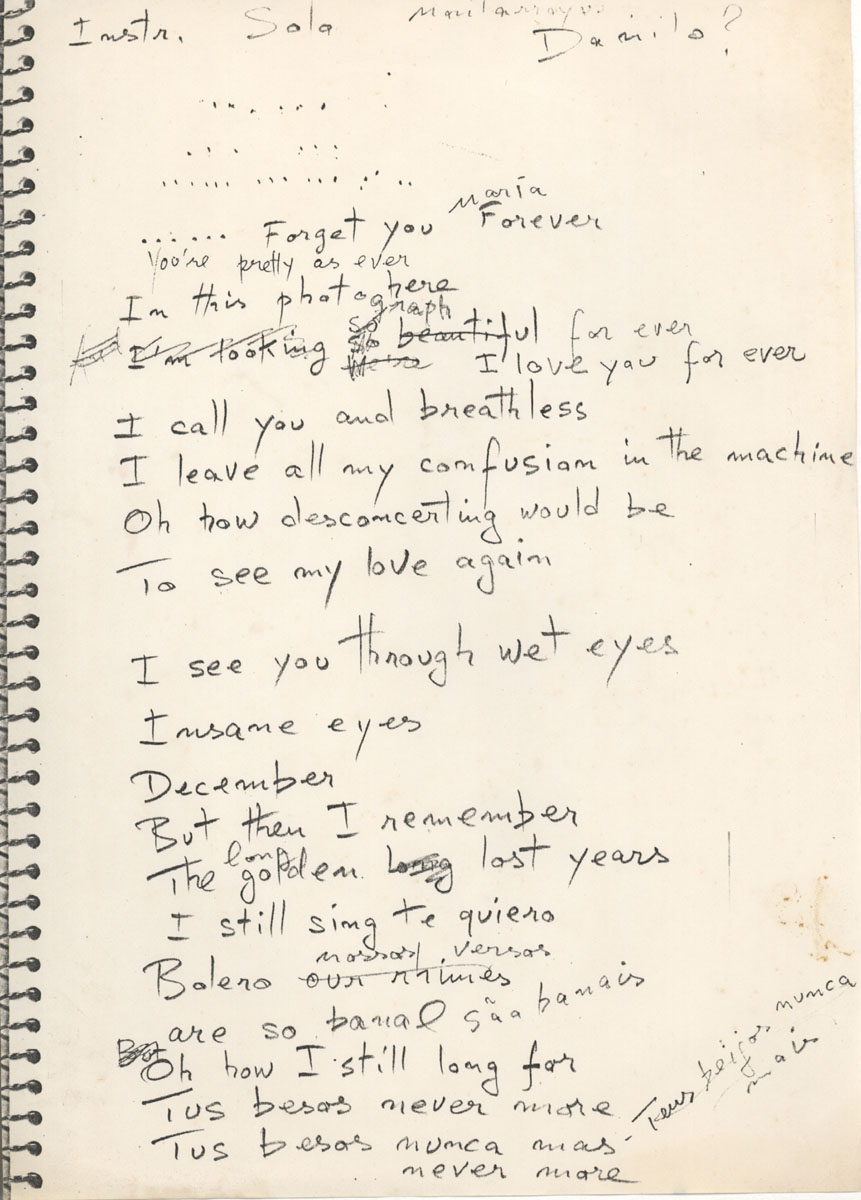 Instr. Sola Danilo?
Maria
...... Forget you Forever
You're pretty as ever
In this photoghere
graph
so
I'm looking so beautiful for ever
We're I love you for ever
I call you and breathless
I leave all my confusion in the machine
Oh how desconcerting would be
To see my love again
I see you through wet eyes
Insane eyes
December
But then I remember
long
The golden long lost years
I still sing te quiero
nossos versos
Bolero our rhimes
are so banal são banais
But Oh how I still long for
Tus besos never more
Tus besos nunca mas-
Teus beijos nunca
mais
never more